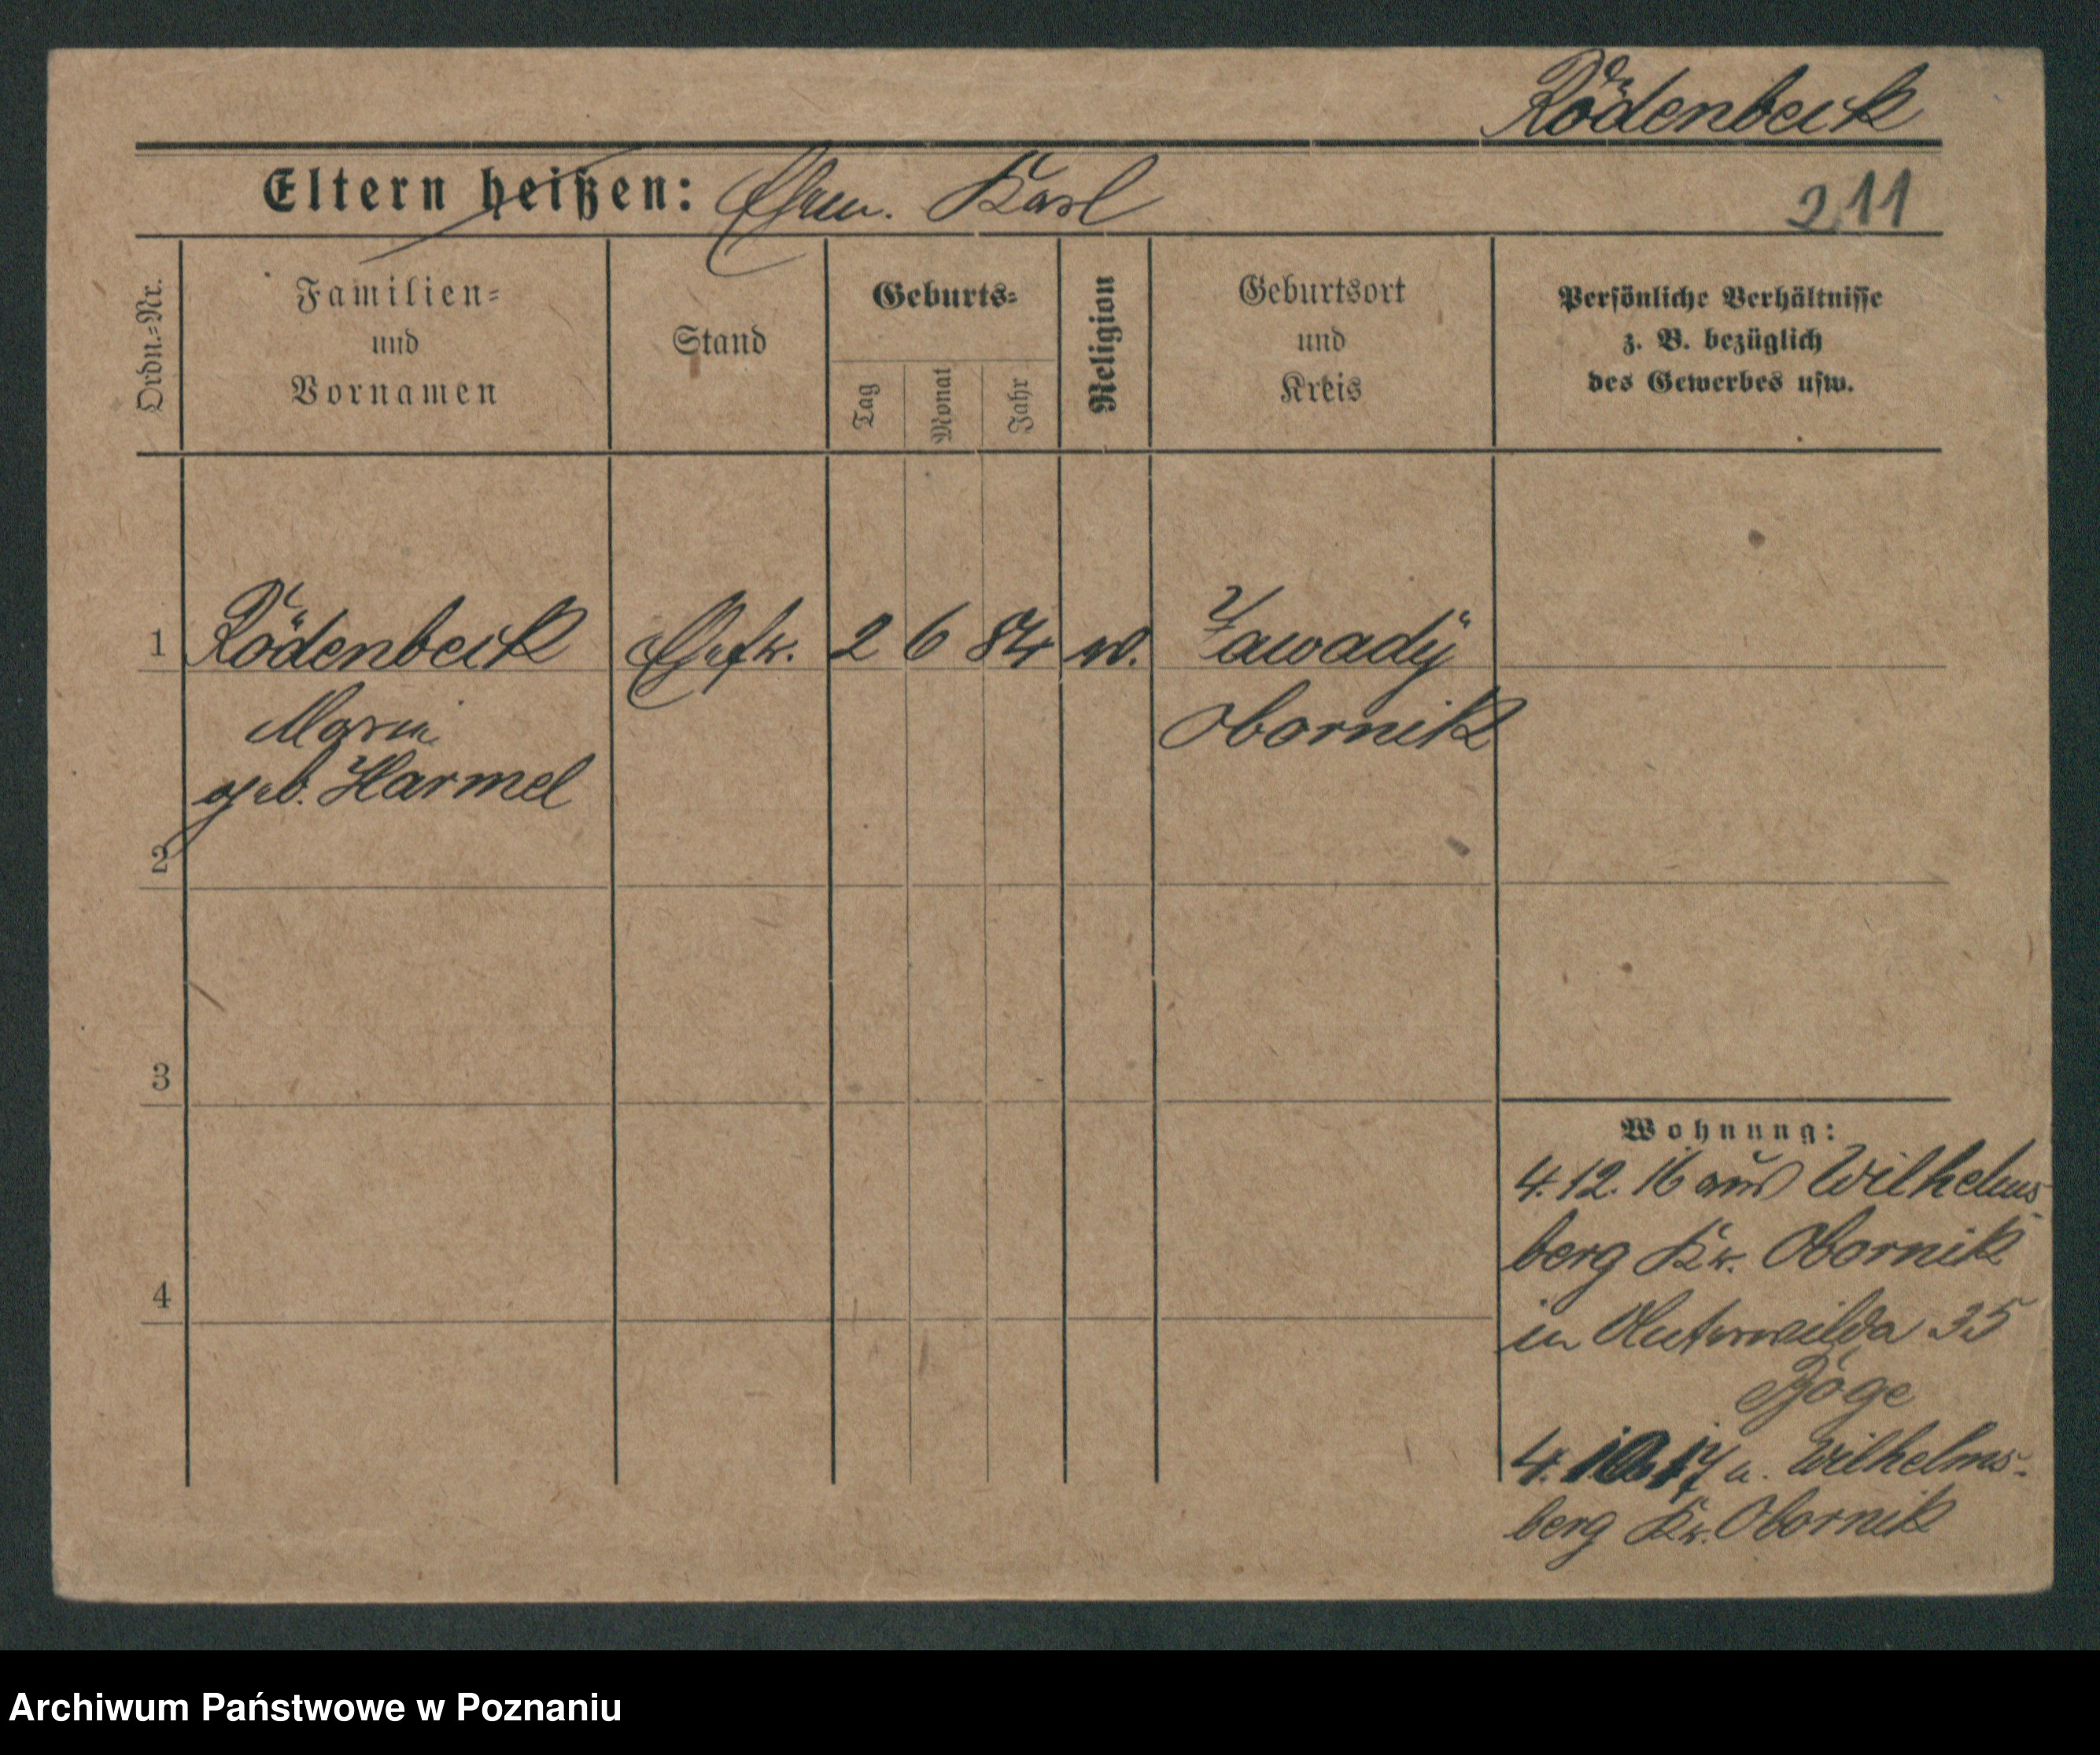 Rödenbeck
Eltern heißen: Ehem. Karl
211
Ordn.-Nr.
Familien-
und
Vornamen
Stand
Geburts-
Tag
Monat
Jahr
Religion
Geburtsort
und
Kreis
Persönliche Verhältnisse
z. B. bezüglich
des Gewerbes usw.
1 Rödenbeck Ehefr. 2 6 84 Zawady
Marie Obornik
geb. Harmel
2
3
4
Wohnung:
4.12.16 aus Wilhelms-
berg Kr. Obornik
in Unterwilda 35
4.10.17 n. Wilhelms-
berg Kr. Obornik
Archiwum Państwowe w Poznaniu